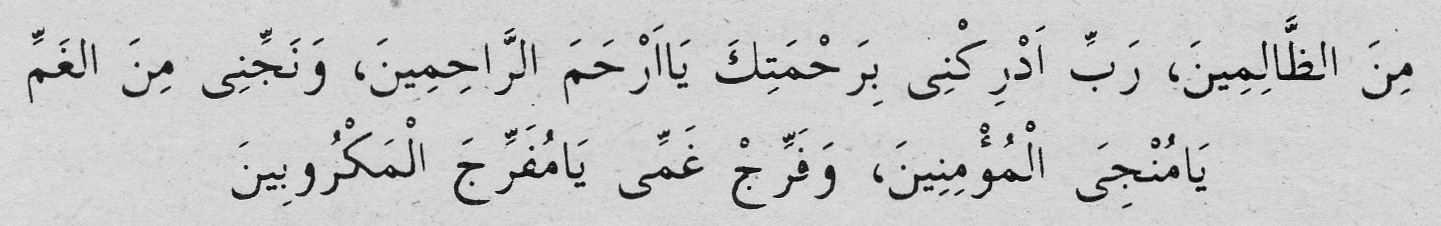 مِنَ الظَّالِمِينَ، رَبِّ اَدْرِكْنِى بِرَحْمَتِكَ يَااَرْحَمَ الرَّاحِمِينَ، وَنَجِّنِى مِنَ الغَمِّ
يَامُنْجِىَ الْمُؤْمِنِينَ، وَفَرِّجْ غَمِّى يَامُفَرِّجَ الْمَكْرُوبِينَ